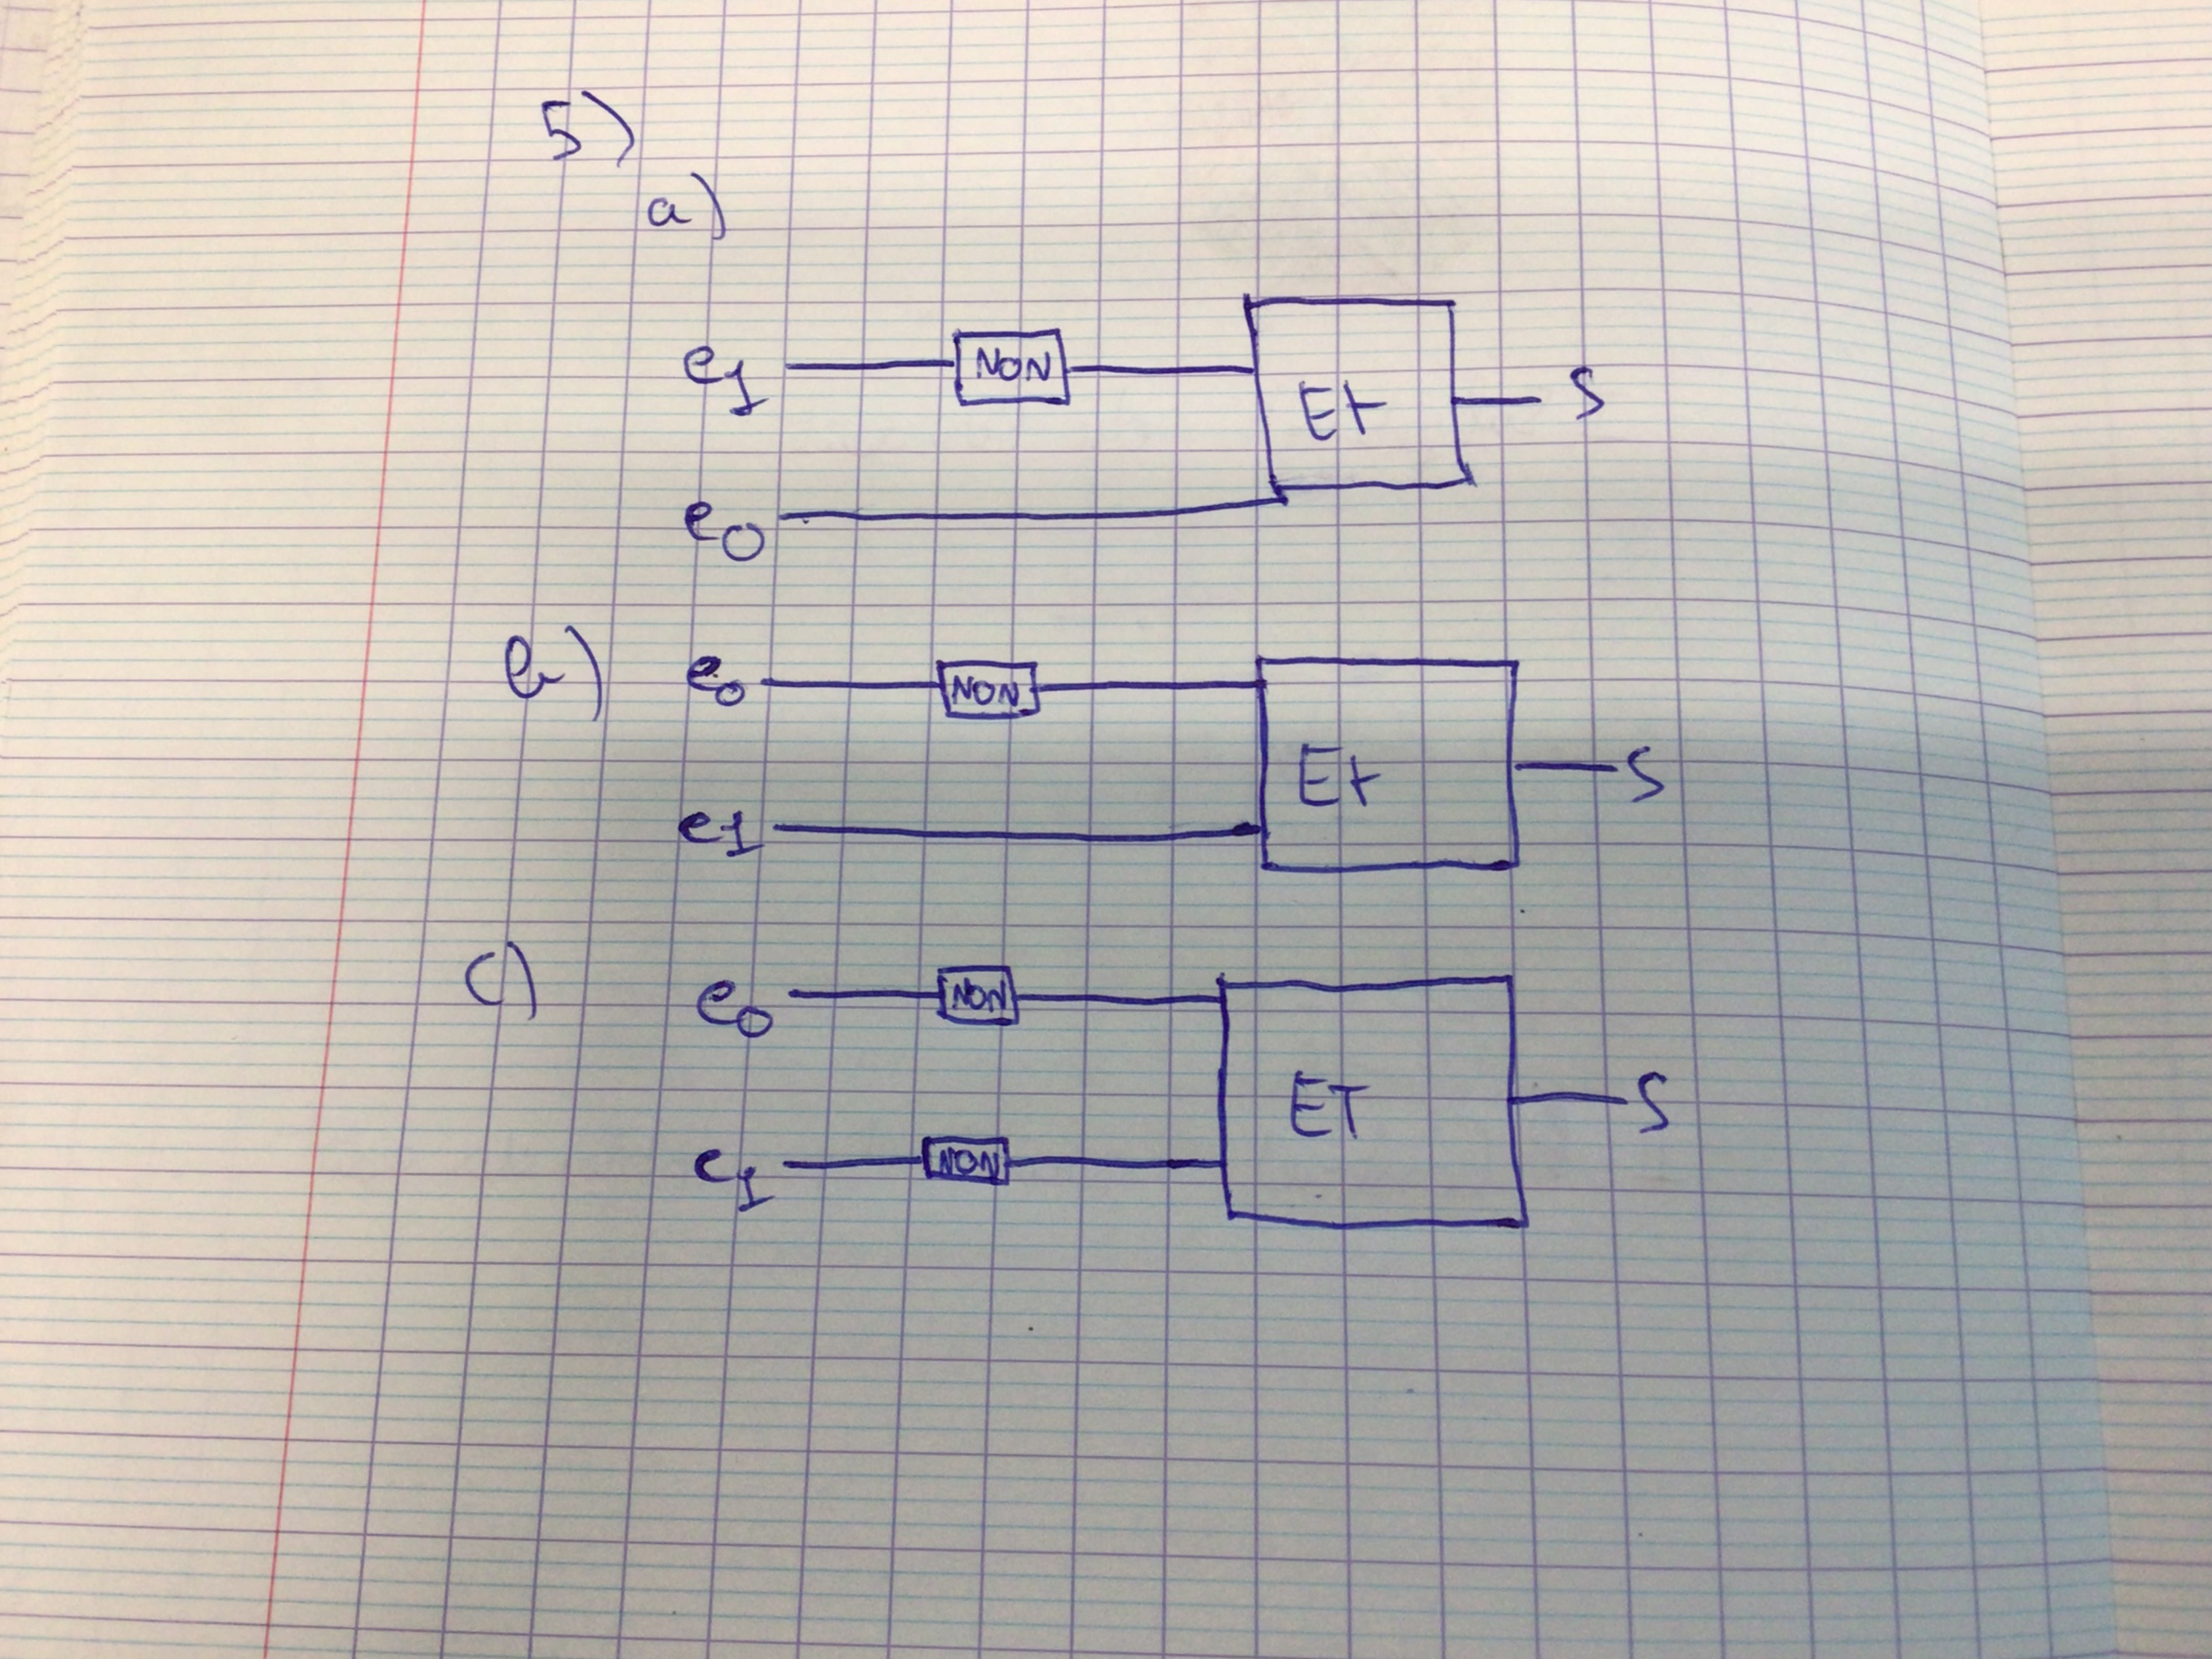 5)
a)
e1 NON Et S
e0
b) e0 NON
Et S
e1
c) e0 NON
ET S
e1 NON